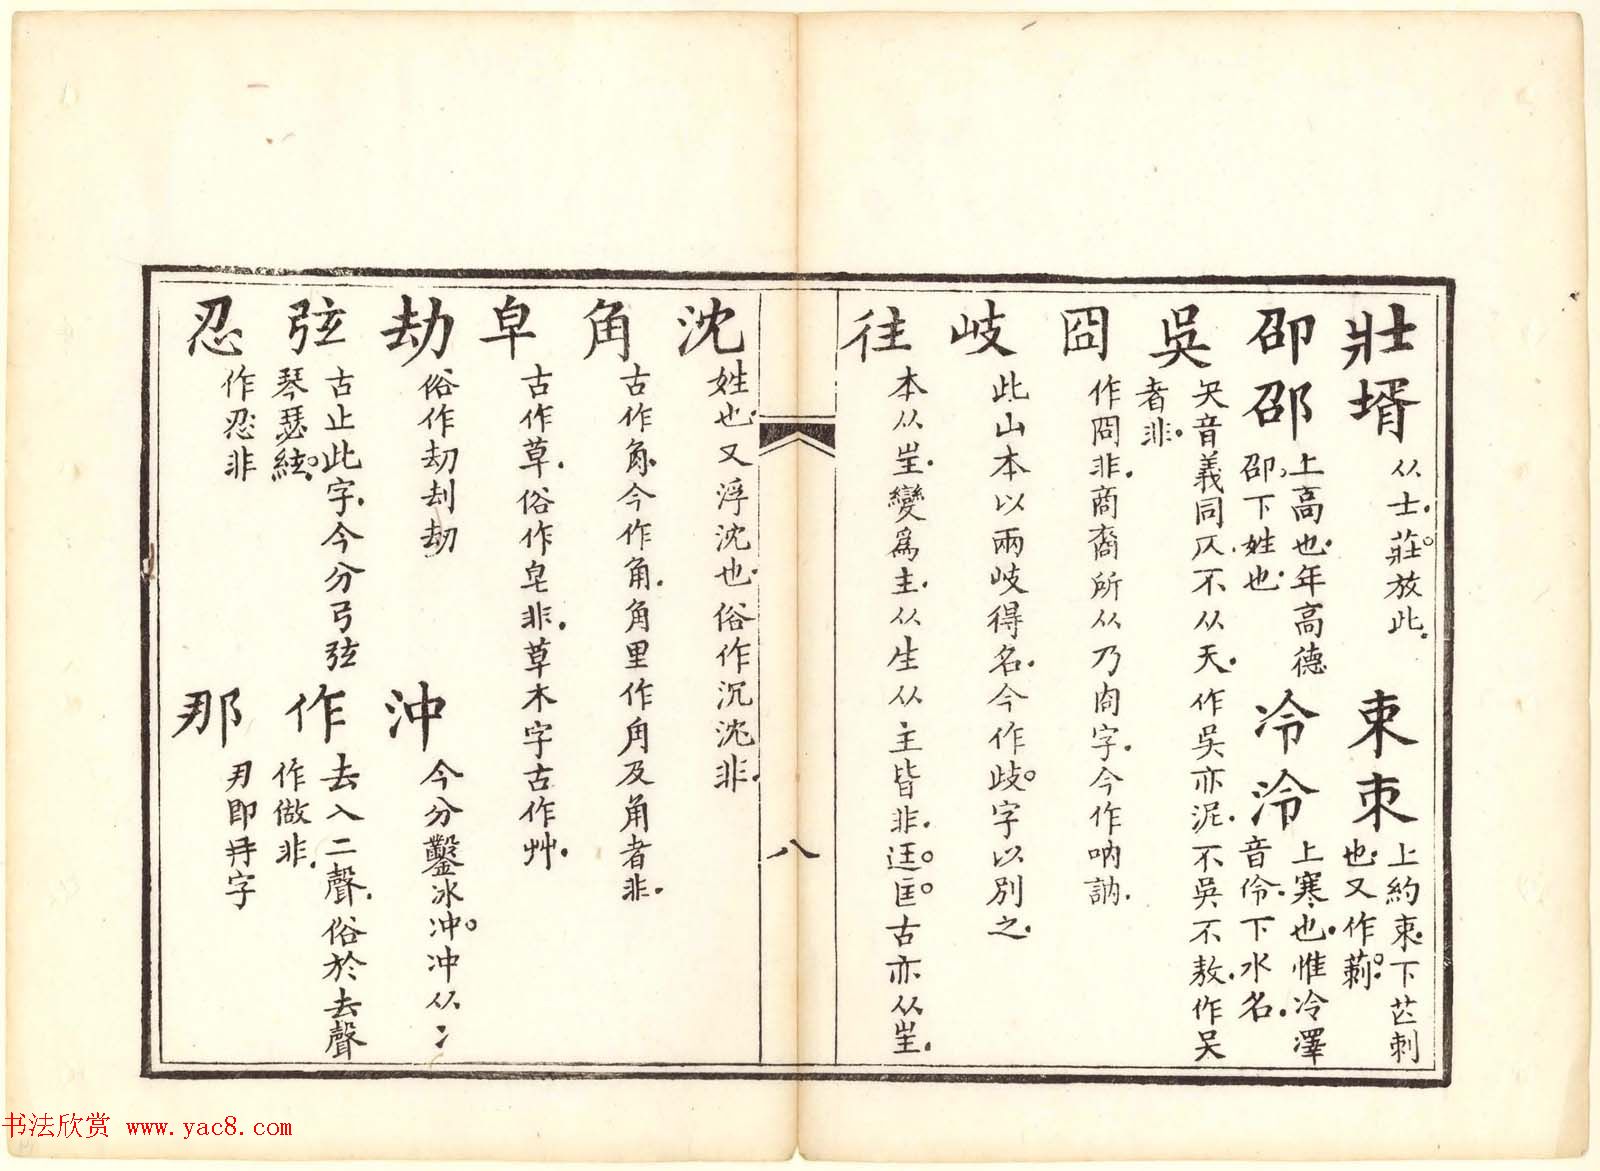 壯壻 从士莊放此
束朿 上約束下芒刺也又作莿
卲邵 上高也年高德卲下姓也
冷泠 上寒也惟冷澤音伶下水名
吳 夨音義同仄不从天作吳亦泥不吳不敖作吴者非
囧 作冏非商裔所从乃㕯字今作吶訥
岐 此山本以兩岐得名今作歧字以別之
往 本从㞷變爲主从生从主皆非迋匡古亦从㞷
八
沈 姓也又浮沈也俗作沉沈非
角 古作𧢲今作角角里作角及角者非
皁 古作草俗作皂非草木字古作艸
劫 俗作刧刦刼
沖 今分鑿冰冲冲从冫
弦 古止此字今分弓弦琴瑟絃
作 去入二聲俗於去聲作做非
忍 作忍非
那 冄即冉字
书法欣赏 www.yac8.com